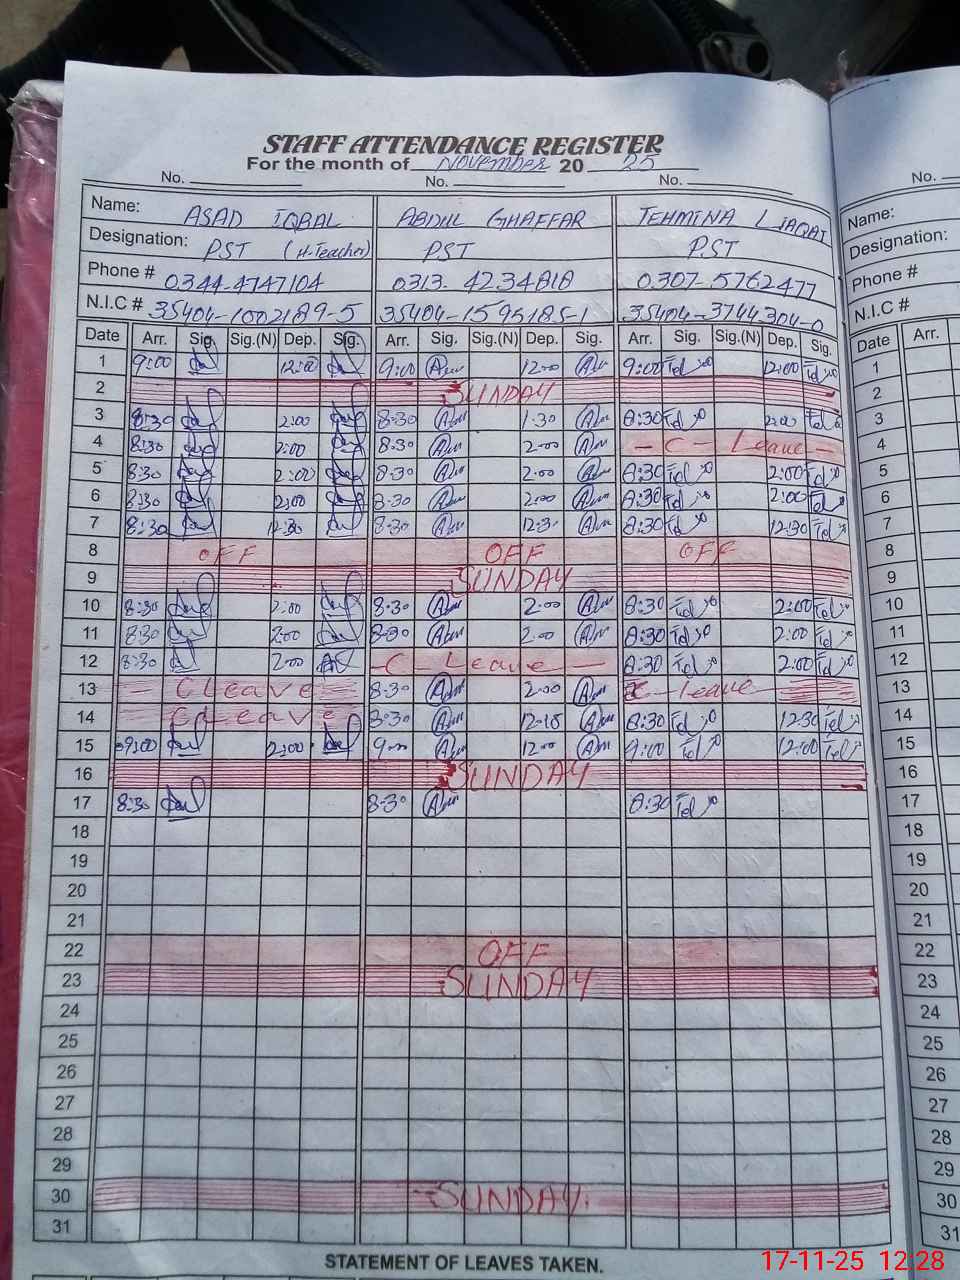 STAFF ATTENDANCE REGISTER
For the month of November 20 25
No. No. No. No.
Name: ASAD IQBAL ABDUL GHAFFAR TEHMINA LIAQAT Name:
Designation: PST (H-Teacher) PST P.ST Designation:
Phone # 0344-4747104 0313-4234818 0307-5762477 Phone #
N.I.C # 35404-1002189-5 35404-1595185-1 35404-3744304-0 N.I.C #
Date Arr. Sig. Sig.(N) Dep. Sig. Arr. Sig. Sig.(N) Dep. Sig. Arr. Sig. Sig.(N) Dep. Sig. Date Arr.
1 9:00 12:00 9:00 12:00 9:00 12:00 1
2 SUNDAY 2
3 8:30 2:00 8:30 1:30 8:30 2:00 3
4 8:30 2:00 8:30 2:00 - C - Leave - 4
5 8:30 2:00 8:30 2:00 8:30 2:00 5
6 8:30 2:00 8:30 2:00 8:30 2:00 6
7 8:30 12:30 8:30 12:30 8:30 12:30 7
8 OFF OFF OFF 8
9 SUNDAY 9
10 8:30 2:00 8:30 2:00 8:30 2:00 10
11 8:30 2:00 8:30 2:00 8:30 2:00 11
12 8:30 2:00 - C Leave - 8:30 2:00 12
13 - C Leave - 8:30 2:00 C - Leave 13
14 C Leave 8:30 12:10 8:30 12:30 14
15 9:00 2:00 9:00 12:00 9:00 12:00 15
16 SUNDAY 16
17 8:30 8:30 8:30 17
18 18
19 19
20 20
21 21
22 OFF 22
23 SUNDAY 23
24 24
25 25
26 26
27 27
28 28
29 29
30 SUNDAY 30
31 31
STATEMENT OF LEAVES TAKEN.
17-11-25 12:28